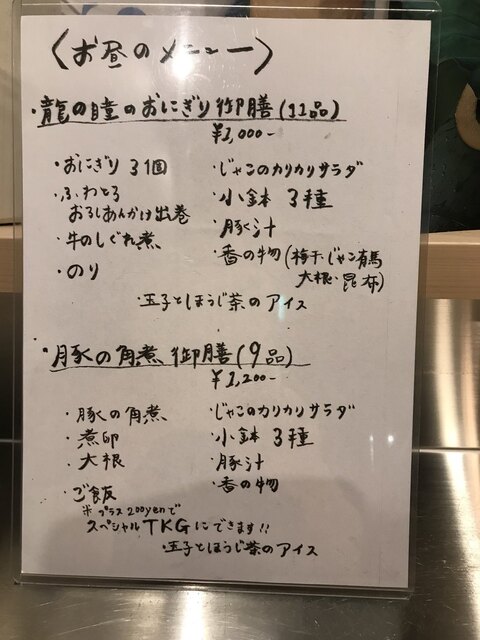 〈お昼のメニュー〉
・龍の瞳のおにぎり御膳(11品)
¥1,000-
・おにぎり 3個
・ふわとろ
おろしあんかけ出巻
・牛のしぐれ煮
・のり
・じゃこのカリカリサラダ
・小鉢 3種
・豚汁
・香の物(梅干・じゃこ有馬
大根・昆布)
・玉子とほうじ茶のアイス
・豚の角煮御膳(9品)
¥1,200-
・豚の角煮
・煮卵
・大根
・ご飯
※プラス200yenで
スペシャルTKGにできます!!
・じゃこのカリカリサラダ
・小鉢 3種
・豚汁
・香の物
・玉子とほうじ茶のアイス